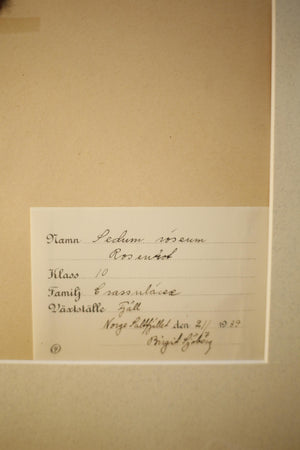 Namn Sedum róseum
Rosenrot
Klass 10
Familj Crassulácex
Växtställe Fjäll
Norge Saltfjället den 2/7 1939
Birgit Sjöberg